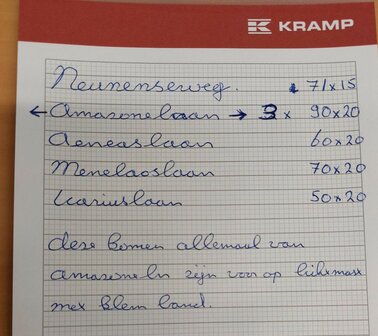 KRAMP
Neunenseweg. 71x15
← Amazonelaan → 3 x 90x20
Aeneaslaan 60x20
Menelaoslaan 70x20
Icariuslaan 50x20
deze komen allemaal van
amazoneln zijn voor op lichtmast
met klem band.